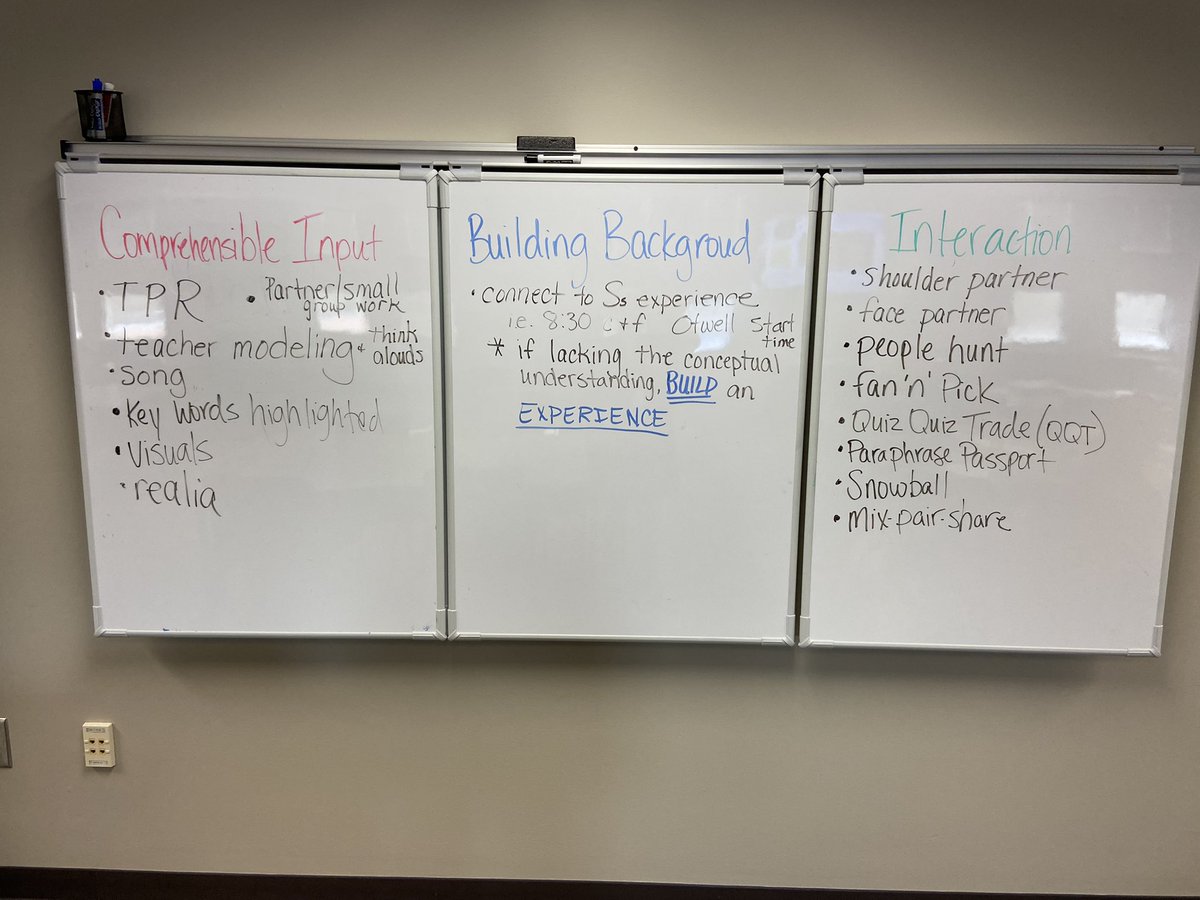 Comprehensible Input
• TPR
• Partner/small
group work
• teacher modeling + think
alouds
• song
• Key words highlighted
• Visuals
• realia
Building Backgroud
• connect to Ss experience
i.e. 8:30 Otwell start
time
* if lacking the conceptual
understanding, BUILD an
EXPERIENCE
Interaction
• shoulder partner
• face partner
• people hunt
• fan 'n' Pick
• Quiz Quiz Trade (QQT)
• Paraphrase Passport
• Snowball
• Mix-pair-share